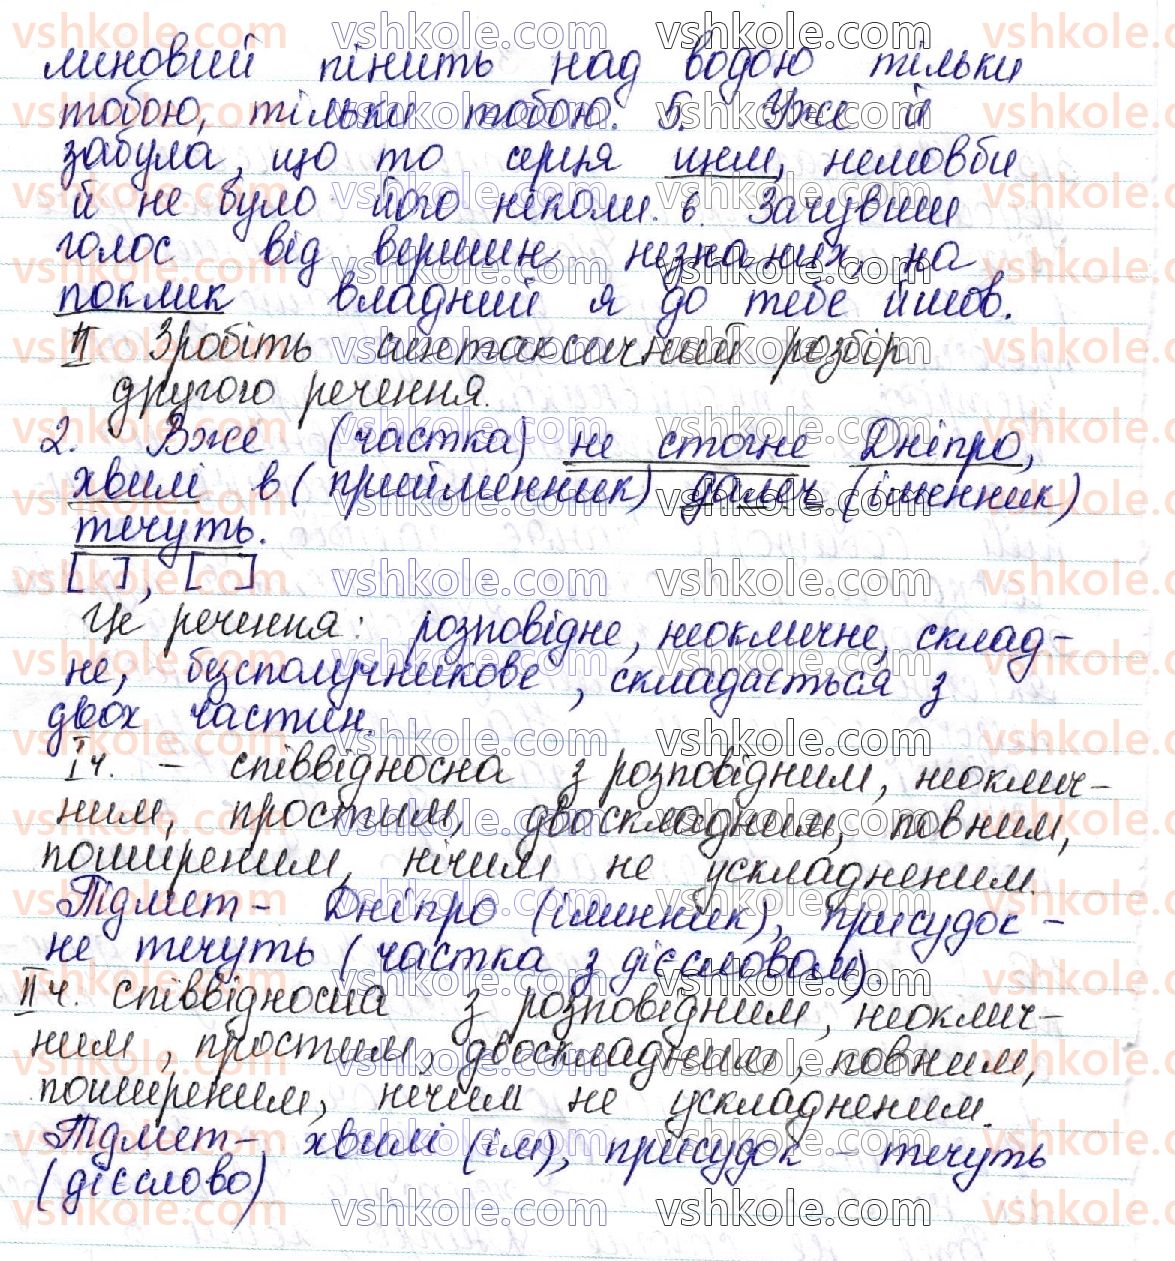 линовий пінить над водою тільки
тобою, тільки тобою. 5. Уже й
забула, що то серця щем, немовби
й не було його ніколи. 6. Зачувши
голос від вершин незнаних, на
поклик владний я до тебе йшов.
ІІ Зробіть синтаксичний розбір
другого речення.
2. Вже (частка) не стогне Дніпро,
хвилі в (прийменник) далеч (іменник)
течуть.
[ ], [ ]
Це речення: розповідне, неокличне, склад-
не, безсполучникове, складається з
двох частин.
І ч. - співвідносна з розповідним, неоклич-
ним, простим, двоскладним, повним,
поширеним, нічим не ускладненим.
Підмет - Дніпро (іминник), присудок -
не течуть (частка з дієсловом).
ІІ ч. співвідносна з розповідним, неоклич-
ним, простим, двоскладним, повним,
поширеним, нечим не ускладненим.
Підмет - хвилі (ім), присудок - течуть
(дієслово)
vshkole.com